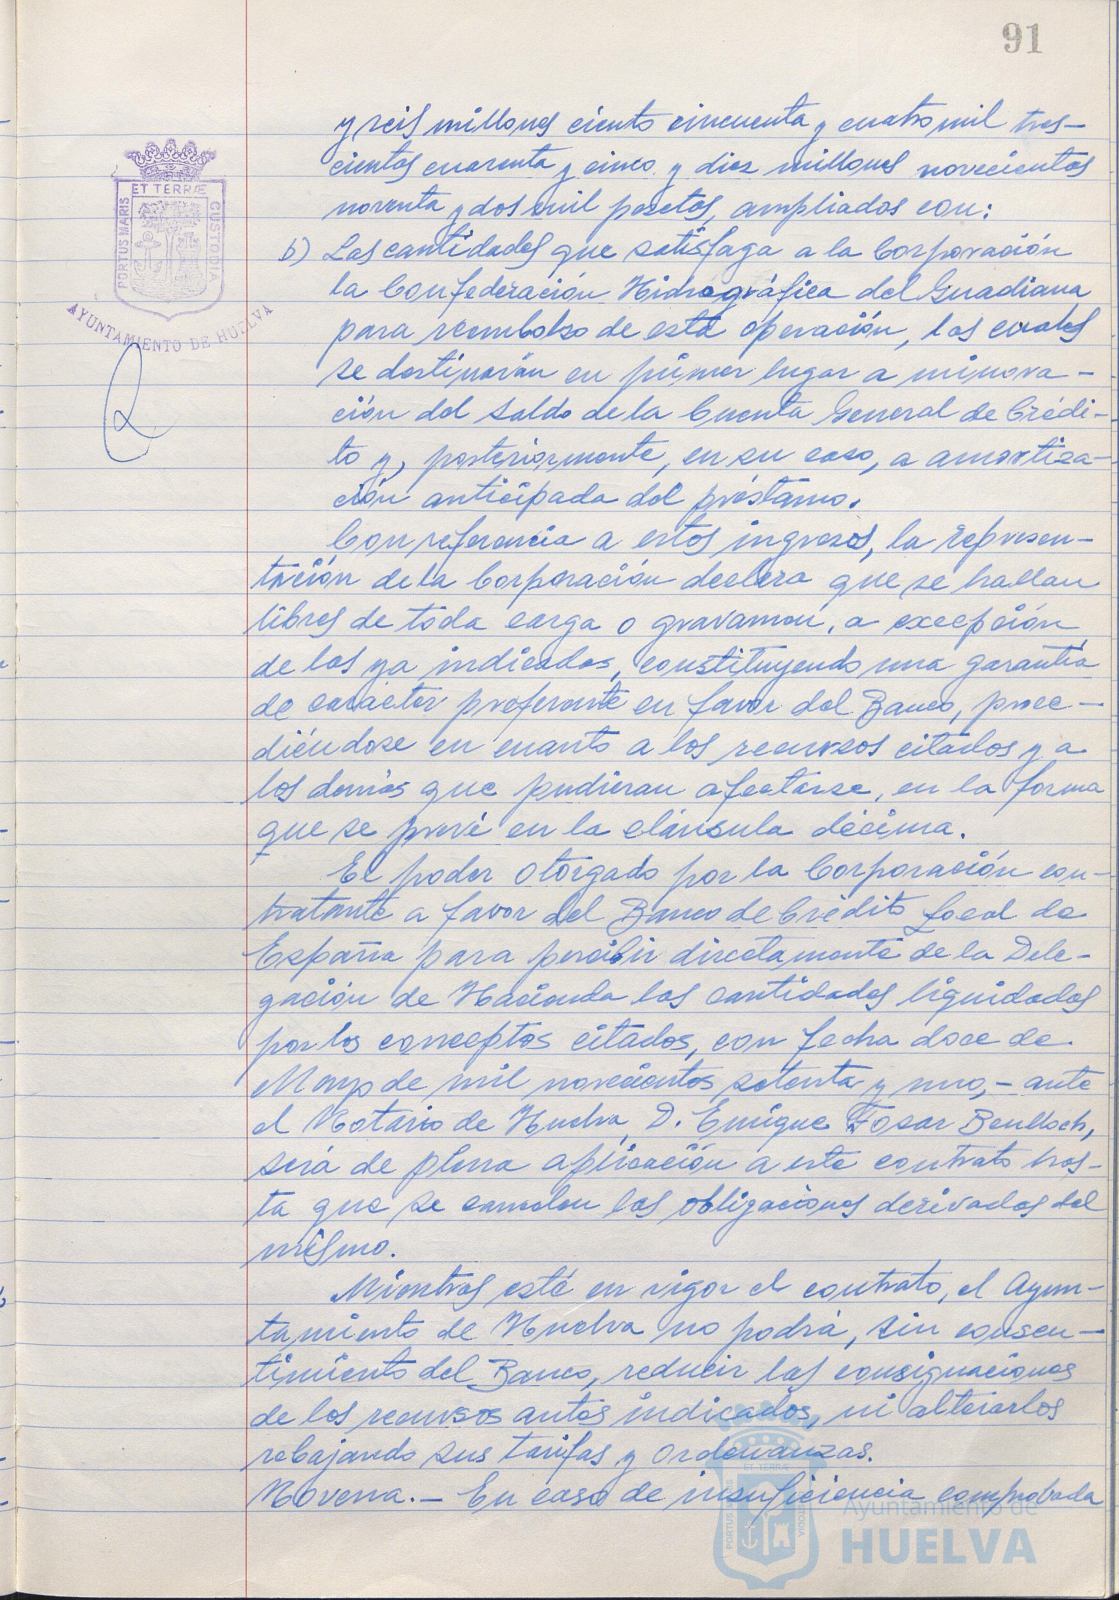 91
y seis millones ciento cincuenta y cuatro mil tres-
cientas cuarenta y cinco y diez millones novecientas
noventa y dos mil pesetas, ampliados con:
b) Las cantidades que satisfaga a la Corporación
la Confederación Hidrográfica del Guadiana
para reembolso de esta operación, las cuales
se destinarán en primer lugar a minora-
ción del saldo de la Cuenta General de Crédi-
to y, posteriormente, en su caso, a amortiza-
ción anticipada del préstamo.
Con referencia a estos ingresos, la represen-
tación de la Corporación declara que se hallan
libres de toda carga o gravamen, a excepción
de los ya indicados, constituyendo una garantía
de carácter preferente en favor del Banco, proce-
diéndose en cuanto a los recursos citados y a
los demás que pudieran afectarse, en la forma
que se prevé en la cláusula décima.
El poder otorgado por la Corporación con-
tratante a favor del Banco de Crédito Local de
España para percibir directamente de la Dele-
gación de Hacienda las cantidades liquidadas
por los conceptos citados, con fecha doce de
Mayo de mil novecientos setenta y uno, - ante
el Notario de Huelva, D. Enrique Fosar Benlloch,
será de plena aplicación a este contrato has-
ta que se cancelen las obligaciones derivadas del
mismo.
Mientras esté en vigor el contrato, el Ayun-
tamiento de Huelva no podrá, sin consen-
timiento del Banco, reducir las consignaciones
de los recursos antes indicados, ni alterarlos
rebajando sus tarifas y Ordenanzas.
Novena.- En caso de insuficiencia comprobada
ET TERRÆ
PORTUS MARIS
CUSTODIA
AYUNTAMIENTO DE HUELVA
ET TERRÆ
PORTUS MARIS
CUSTODIA
Ayuntamiento de
HUELVA